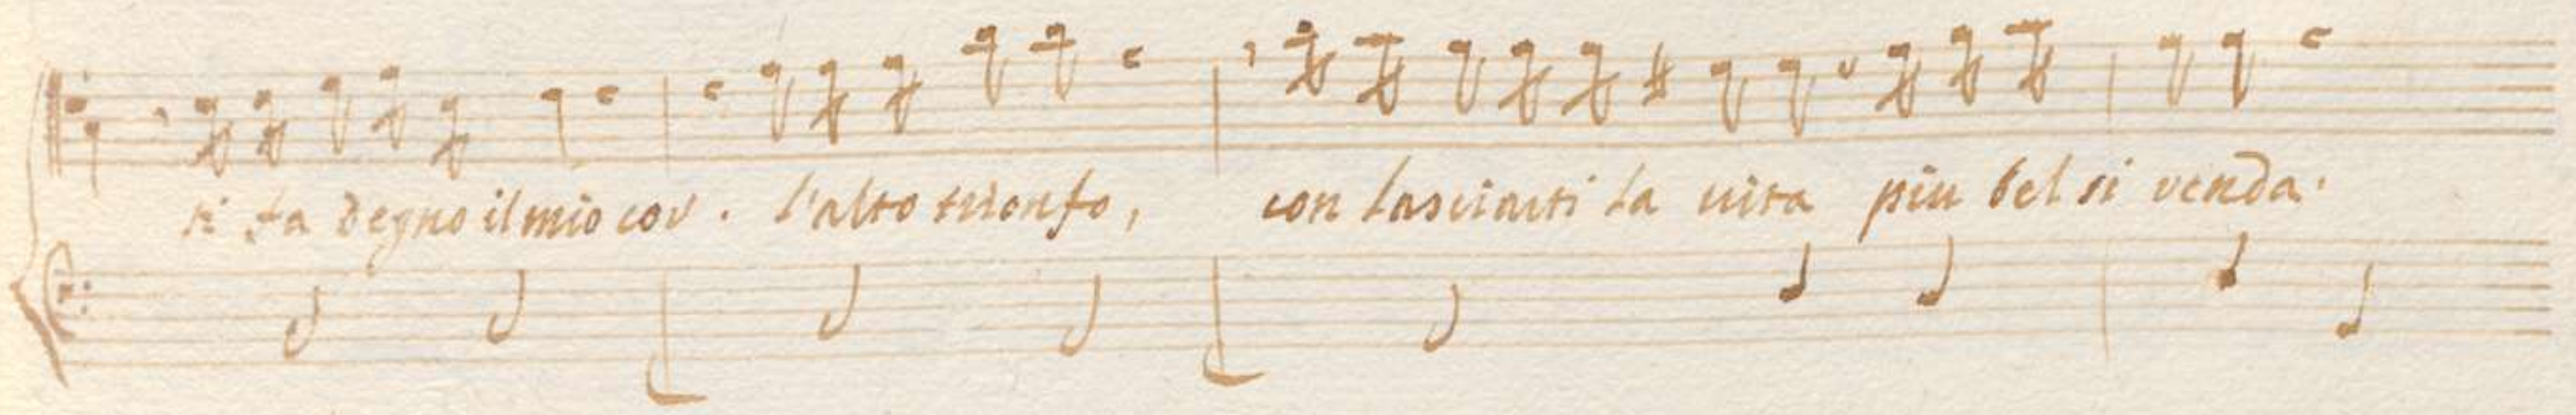 si fa degno il mio cor. l'alto trionfo, con lasciarti la vita piu bel si renda.